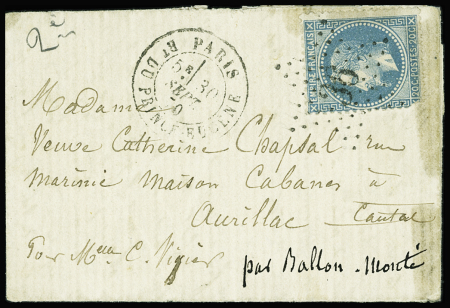 2e
PARIS
Bt DU PRINCE EUGENE
5E
30
SEPT.
70
EMPIRE FRANÇAIS
20 C. POSTES 20 C.
Madame
Veuve Catherine Chapsal rue
Marinie Maison Cabanes à
Aurillac Cantal
Por Mme C. Vigier
par Ballon-Monté